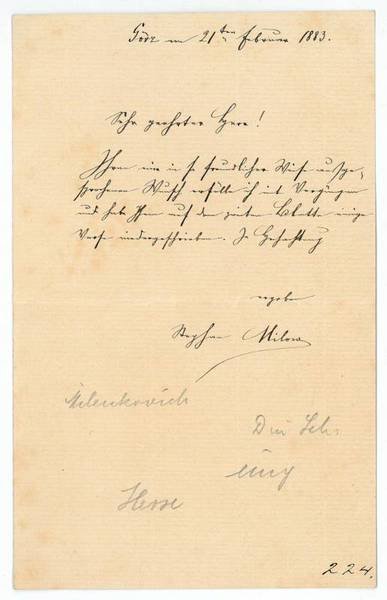 Görz am 21ten Februar 1883.
Sehr geehrter Herr!
Ihren mir in so freundlicher Weise ausge-
sprochenen Wunsch erfülle ich mit Vergnügen
und habe Ihnen auf dem zweiten Blatte einige
Verse niedergeschrieben. In Hochachtung
ergeben
Stephan Milow
Milenkovich
Drei
Hesse
224.